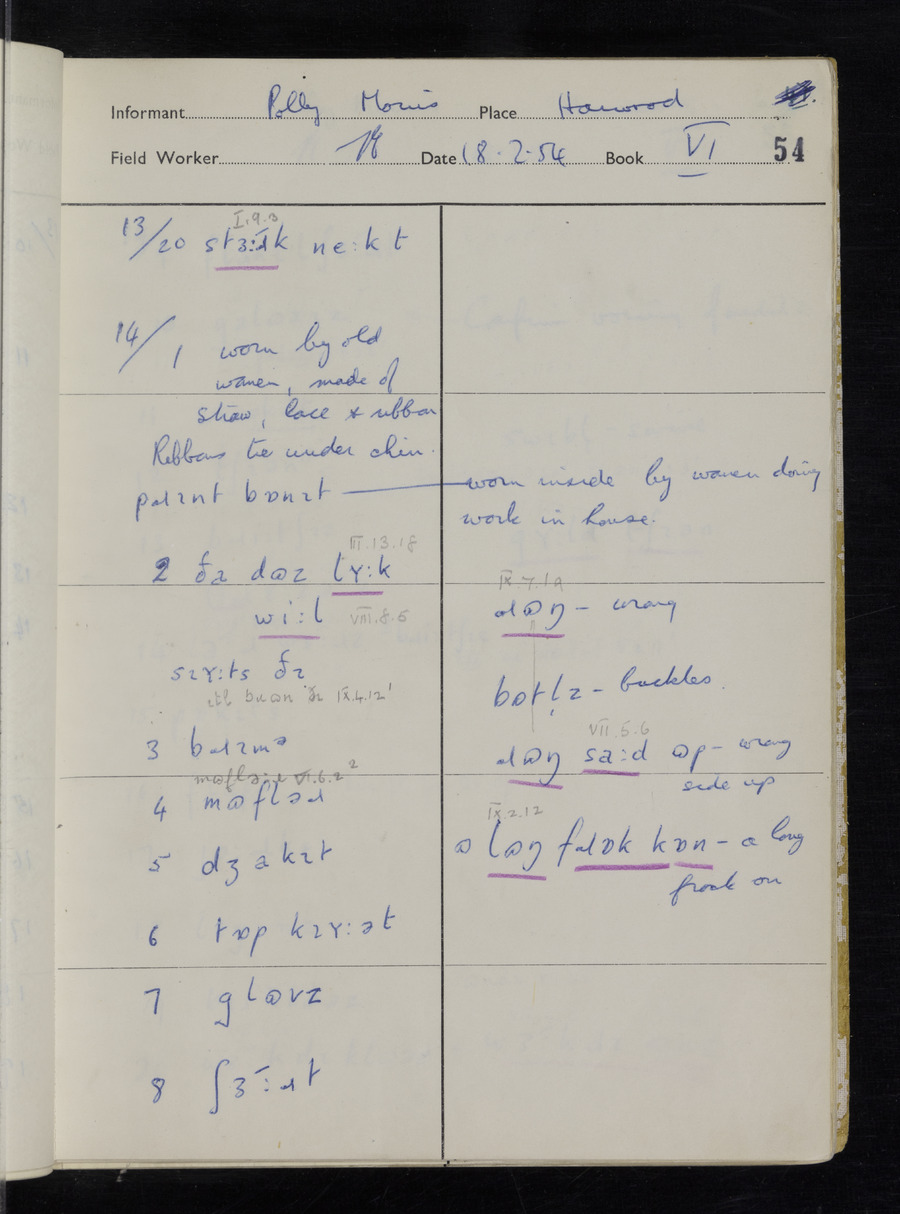 Informant Polly Morris Place Hanwood
Field Worker Date 18.2.54 Book VI 54
I.9.3
13/20 stɜ:ɹk ne:kt
14/1 worn by old
women, made of
straw, lace & ribbon
Ribbons tie under chin.
paɹɪnt bɒnɪt — worn inside by women doing
work in house.
III.13.18
2 ðɪ dɷz lʏ:k
wi:l VIII.8.5
sɪʏ:ts ðɪ
IX.4.12
3 baɹɪmz
VI.6.2
4 mɷfləɹ
5 dʒakɪt
6 tɒp kɪʏ:ət
7 glɷvz
8 ʃɜ:ɹt
IX.7.1a
ɹɷŋ – wrong
bɒtlz – buckles
VII.5.6
ɹɷŋ sa:d ɷp – wrong
side up
IX.2.12
ə lɷŋ fɹɒk kɒn – a long
frock on